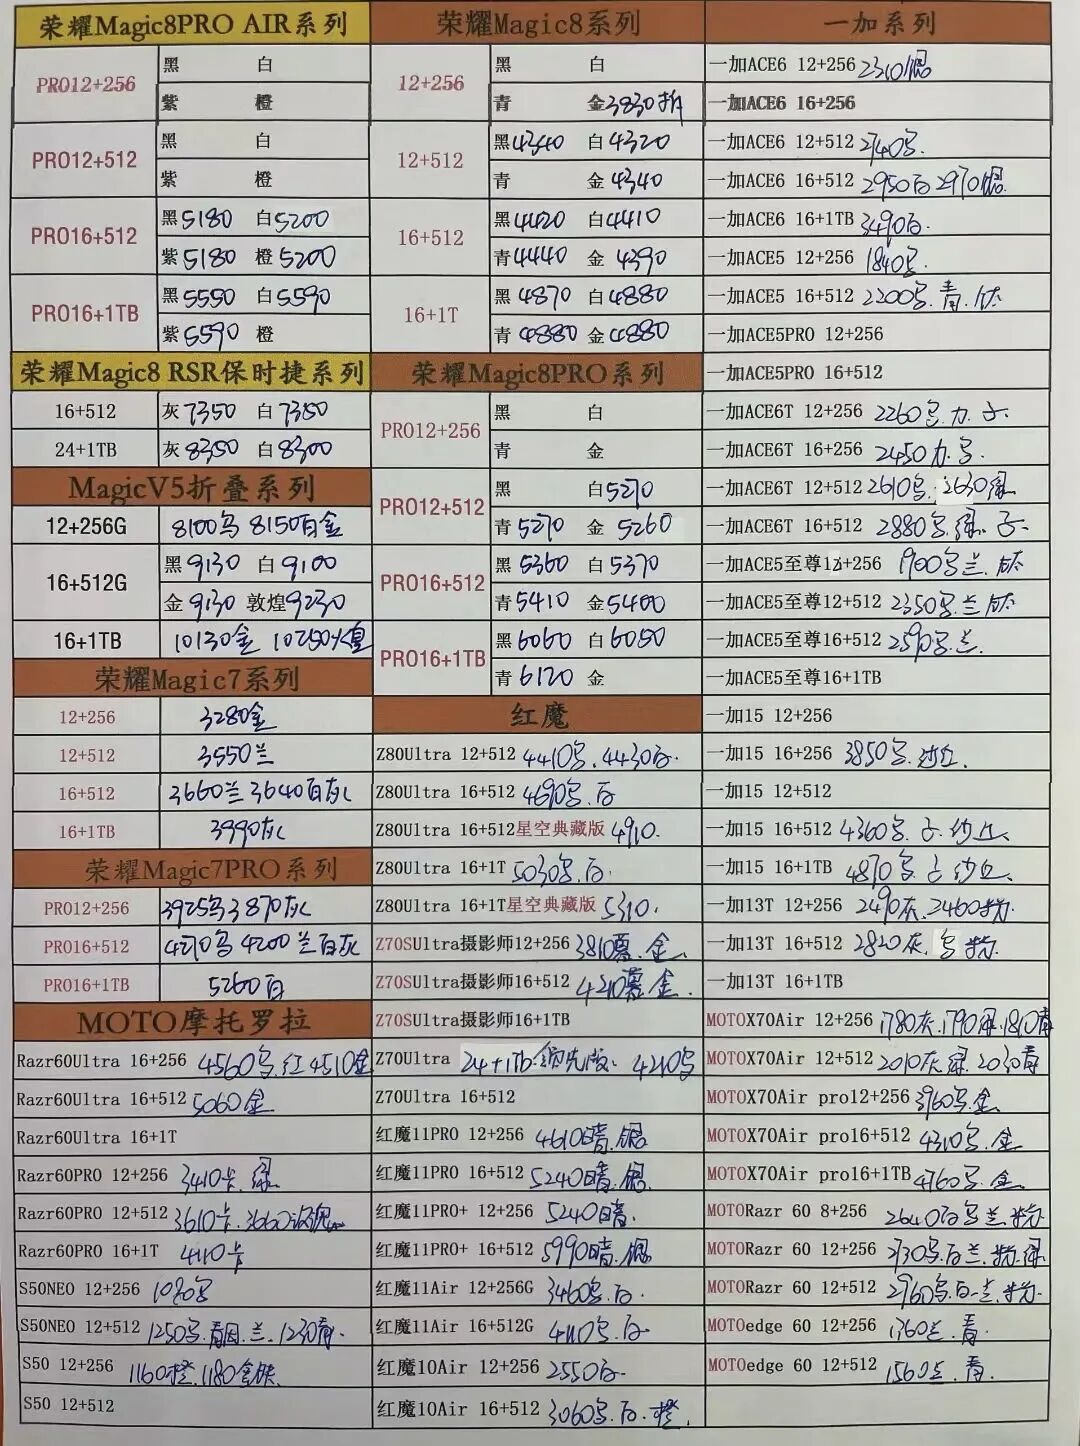 荣耀Magic8PRO AIR系列
PRO12+256 黑 白
紫 橙
PRO12+512 黑 白
紫 橙
PRO16+512 黑5180 白5200
紫5180 橙5200
PRO16+1TB 黑5550 白5590
紫5590 橙
荣耀Magic8 RSR保时捷系列
16+512 灰7350 白7350
24+1TB 灰8350 白8300
MagicV5折叠系列
12+256G 8100乌 8150白金
16+512G 黑9130 白9100
金9130 敦煌9230
16+1TB 10130金 10250火皇
荣耀Magic7系列
12+256 3280金
12+512 3550兰
16+512 3660兰 3640白灰
16+1TB 3990灰
荣耀Magic7PRO系列
PRO12+256 3925乌 3870灰
PRO16+512 4270乌 4200兰白灰
PRO16+1TB 5260白
MOTO摩托罗拉
Razr60Ultra 16+256 4560乌.红 4510金
Razr60Ultra 16+512 5060金
Razr60Ultra 16+1T
Razr60PRO 12+256 3410卡.绿
Razr60PRO 12+512 3610卡.3660
Razr60PRO 16+1T 4110卡
S50NEO 12+256 1080乌
S50NEO 12+512 1250乌.兰.1230青.
S50 12+256 1160橙.1180
S50 12+512
荣耀Magic8系列
12+256 黑 白
青 金3830折
12+512 黑4340 白4320
青 金4340
16+512 黑4420 白4410
青4440 金4390
16+1T 黑4870 白4880
青4880 金4880
荣耀Magic8PRO系列
PRO12+256 黑 白
青 金
PRO12+512 黑 白5270
青5270 金5260
PRO16+512 黑5360 白5370
青5410 金5400
PRO16+1TB 黑6060 白6050
青6120 金
红魔
Z80Ultra 12+512 4410乌.4430白.
Z80Ultra 16+512 4690乌.白
Z80Ultra 16+512星空典藏版 4910.
Z80Ultra 16+1T 5030乌.白.
Z80Ultra 16+1T星空典藏版 5310.
Z70SUltra摄影师12+256 3810.金.
Z70SUltra摄影师16+512 4210.金.
Z70SUltra摄影师16+1TB
Z70Ultra 24+1Tb领先版 4210乌
Z70Ultra 16+512
红魔11PRO 12+256 4610暗.银
红魔11PRO 16+512 5240暗.银.
红魔11PRO+ 12+256 5240暗.
红魔11PRO+ 16+512 5990暗.银
红魔11Air 12+256G 3460乌.白.
红魔11Air 16+512G 4110乌.白
红魔10Air 12+256 2550白.
红魔10Air 16+512 3060乌.白.橙.
一加系列
一加ACE6 12+256 2310银
一加ACE6 16+256
一加ACE6 12+512 2740乌.
一加ACE6 16+512 2950白 2970银.
一加ACE6 16+1TB 3490白.
一加ACE5 12+256 1840乌.
一加ACE5 16+512 2200乌.青.钛
一加ACE5PRO 12+256
一加ACE5PRO 16+512
一加ACE6T 12+256 2260乌.力.子.
一加ACE6T 16+256 2450力.乌.
一加ACE6T 12+512 2610乌.2630绿
一加ACE6T 16+512 2880乌.绿.子.
一加ACE5至尊12+256 1900乌兰.钛
一加ACE5至尊12+512 2350乌.兰钛
一加ACE5至尊16+512 2590乌.兰.
一加ACE5至尊16+1TB
一加15 12+256
一加15 16+256 3850乌.沙丘.
一加15 12+512
一加15 16+512 4360乌.子.沙丘.
一加15 16+1TB 4870乌.子沙丘.
一加13T 12+256 2490灰.2460粉.
一加13T 16+512 2820灰.乌粉.
一加13T 16+1TB
MOTOX70Air 12+256 1780灰.1790绿.1810青
MOTOX70Air 12+512 2010灰绿.2030青
MOTOX70Air pro12+256 3960乌.金.
MOTOX70Air pro16+512 4310乌.金
MOTOX70Air pro16+1TB 4760乌.金.
MOTORazr 60 8+256 2640白乌兰.粉
MOTORazr 60 12+256 2730乌.白兰.粉.绿
MOTORazr 60 12+512 2960乌.白.兰.粉.
MOTOedge 60 12+256 1360兰.青.
MOTOedge 60 12+512 1560兰.青.